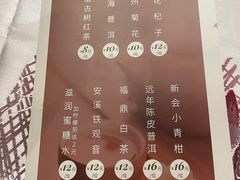 枸杞子
杭州菊花
10元/位
海普洱
10元/位
古树红茶
8元/位
新会小青柑
16元/位
远年陈皮普洱
16元/位
福鼎白茶
12元/位
安溪铁观音
12元/位
滋润蜜糖水
加柠檬另收2元
12元/位